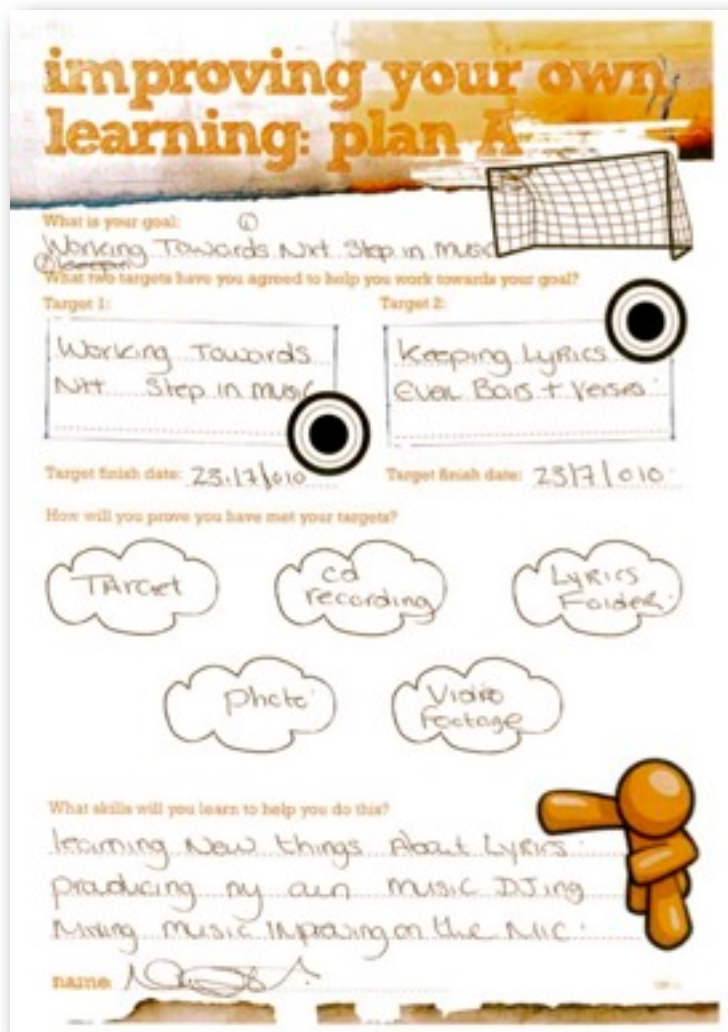 improving your own
learning: plan A
What is your goal:
①
Working Towards Nxt Step in Music
What two targets have you agreed to help you work towards your goal?
Target 1:
Target 2:
Working Towards
Nxt Step in music
Keeping Lyrics
Even Bars +
Target finish date: 23.17/010
Target finish date: 23/7/010
How will you prove you have met your targets?
TArGet
cd
recording
LyRics
Folder
photo
Vidio
Footage
What skills will you learn to help you do this?
learning New things About LyRics
producing my own music DJing
Mixing music improving on the Mic
name: